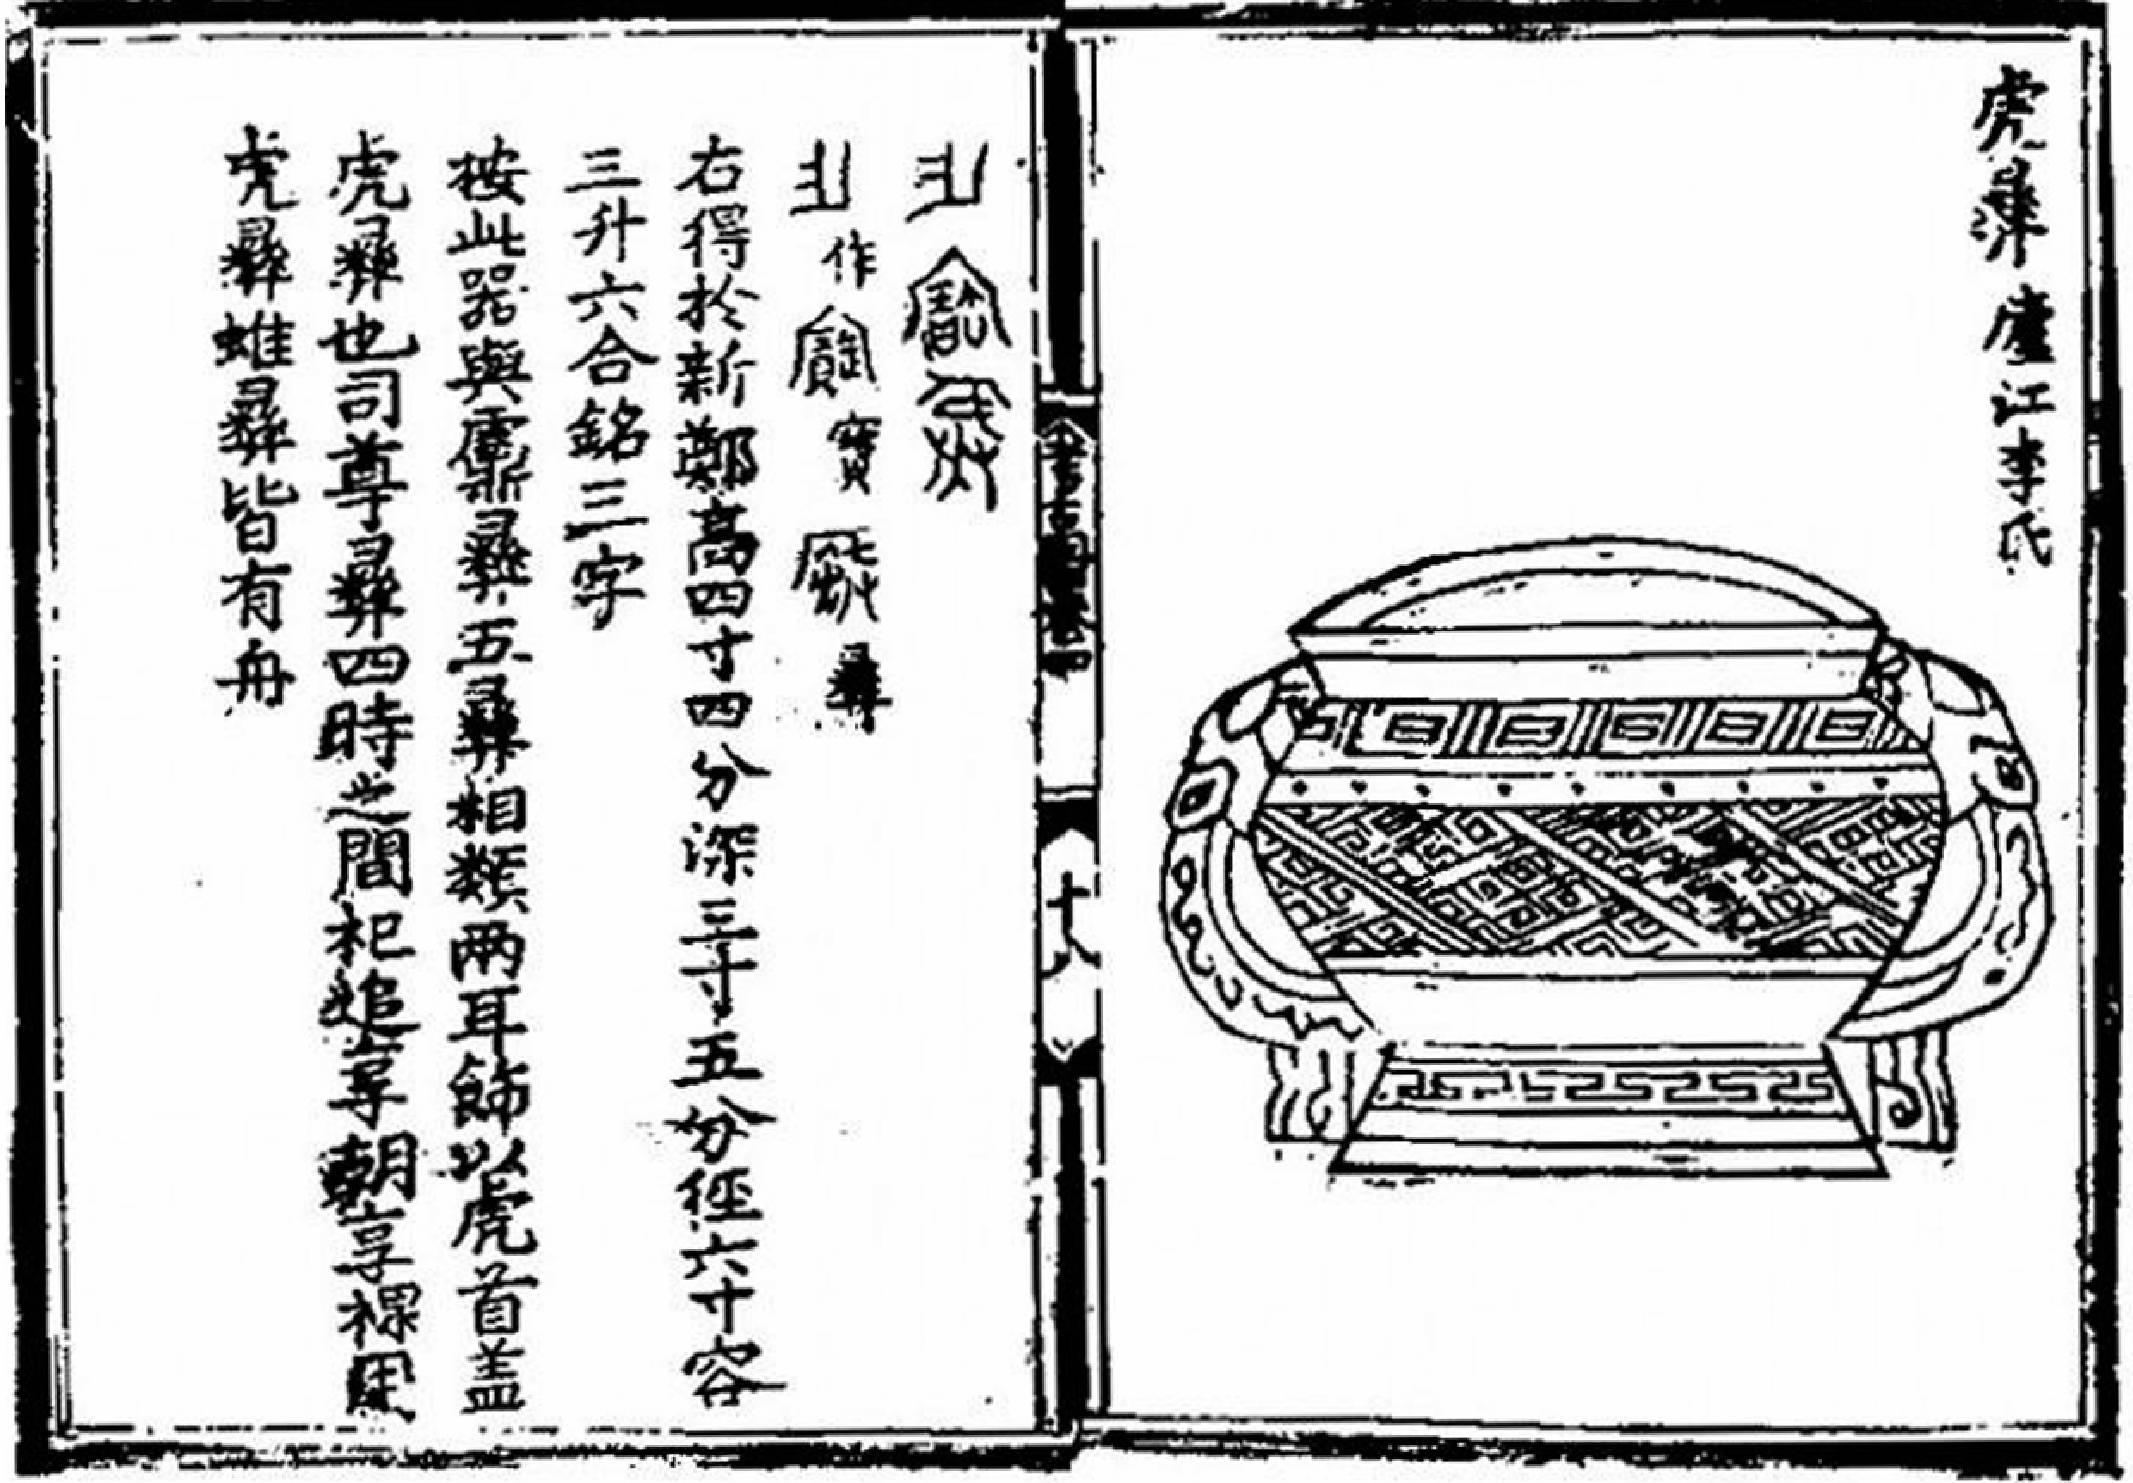 虎彝 廬江李氏
作 寶 彝
右得於新鄭高四寸四分深三寸五分徑六寸容
三升六合銘三字
按此器與虪彝五彝相類兩耳飾以虎首蓋
虎彝也司尊彝四時之間祀追享朝享祼用
虎彝蜼彝皆有舟
十八